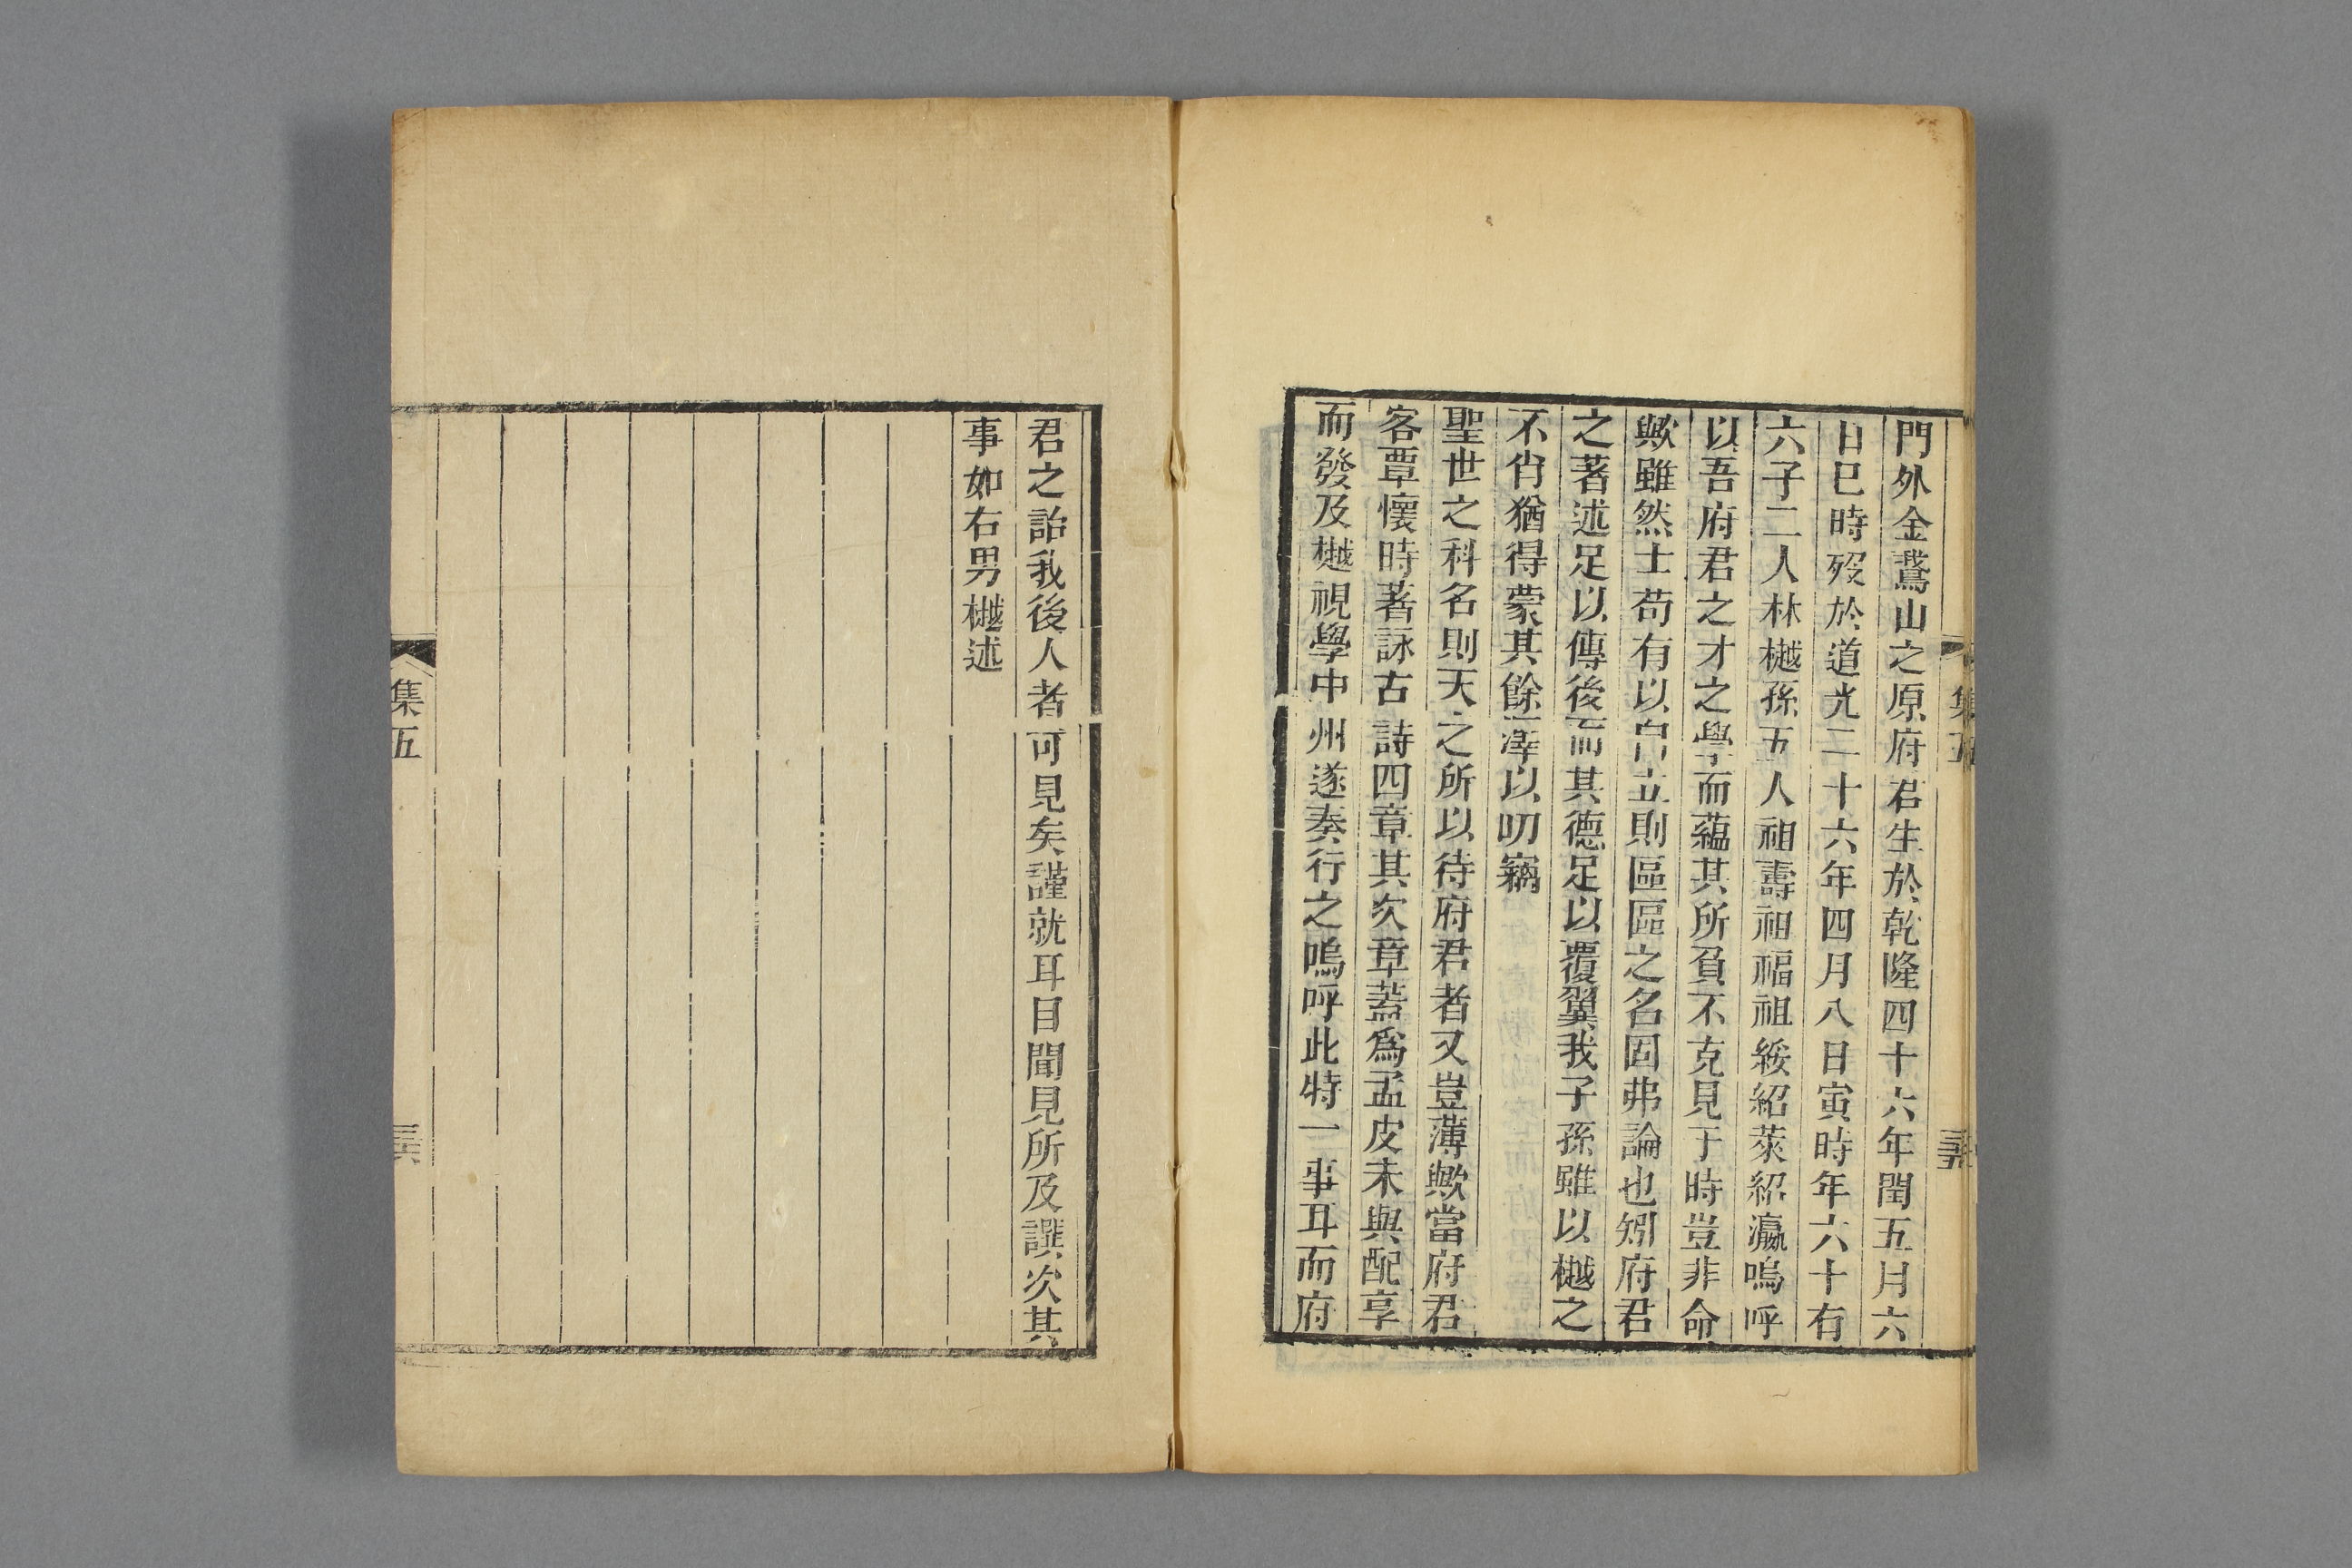 門外金鵞山之原府君生於乾隆四十六年閏五月六
日巳時歿於道光二十六年四月八日寅時年六十有
六子二人林樾孫五人祖壽祖福祖綏紹萊紹瀛嗚呼
以吾府君之才之學而蘊其所負不克見于時豈非命
歟雖然士苟有以自立則區區之名固弗論也矧府君
之著述足以傳後而其德足以覆翼我子孫雖以樾之
不肖猶得蒙其餘澤以叨竊
聖世之科名則天之所以待府君者又豈薄歟當府君
客覃懷時著詠古詩四章其次章蓋爲孟皮未與配享
而發及樾視學中州遂奏行之嗚呼此特一事耳而府
集五
君之詒我後人者可見矣謹就耳目聞見所及譔次其
事如右男樾述
集五